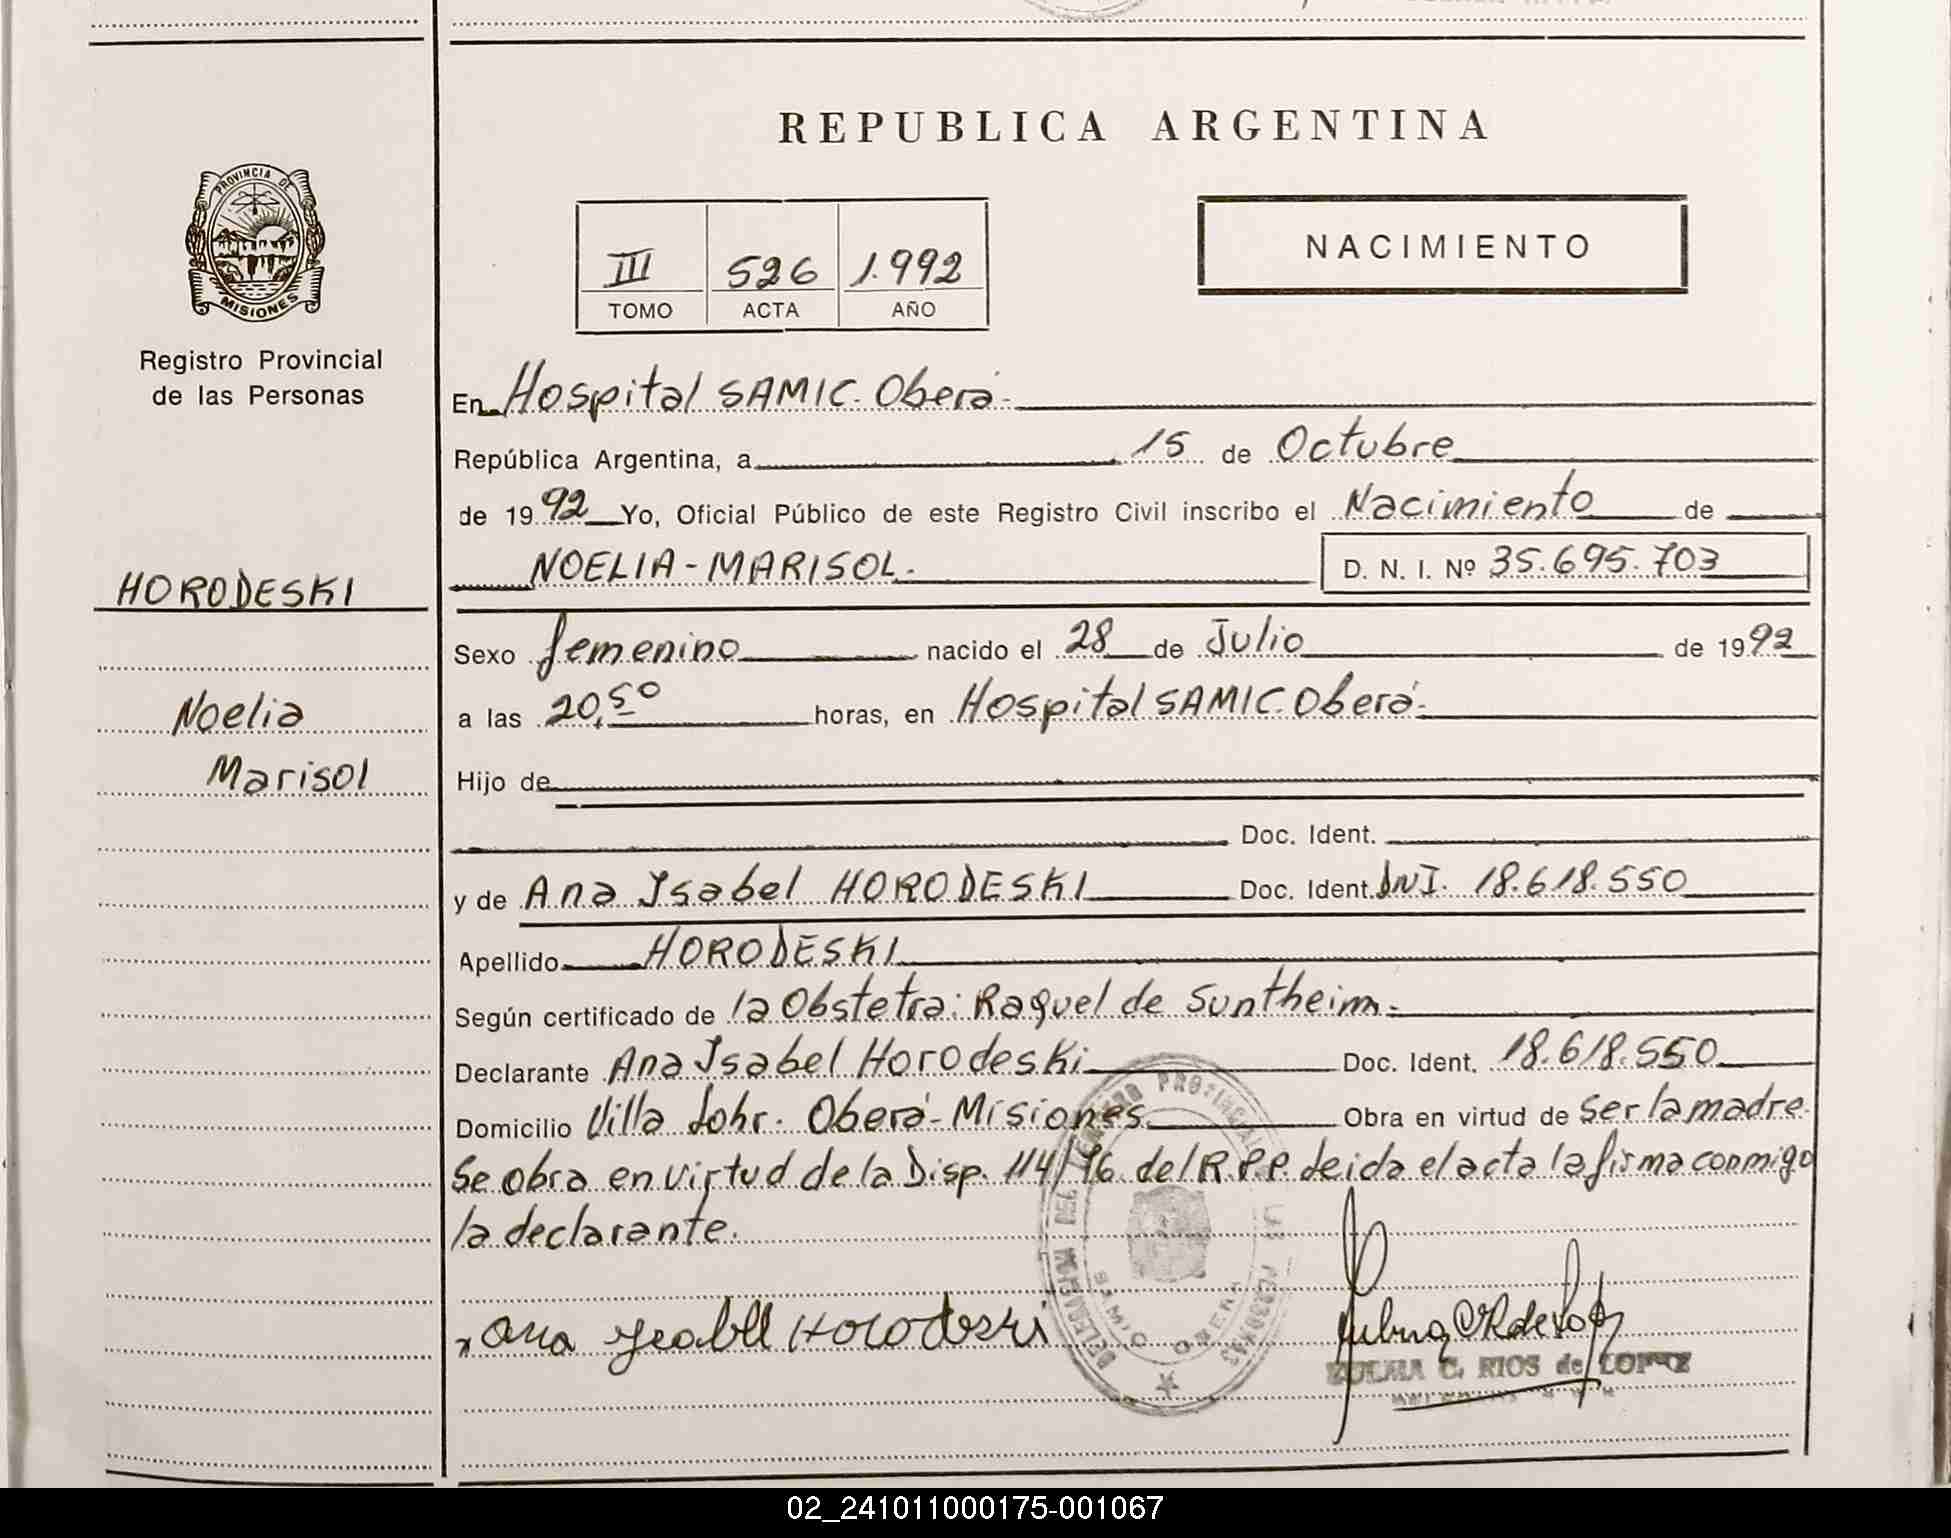 REPUBLICA ARGENTINA
PROVINCIA DE
MISIONES
Registro Provincial
de las Personas
III 526 1.992
TOMO ACTA AÑO
NACIMIENTO
En Hospital SAMIC. Oberá.
República Argentina, a 15 de Octubre
de 1992 Yo, Oficial Público de este Registro Civil inscribo el Nacimiento de
NOELIA-MARISOL. D. N. I. Nº 35.695.703
HORODESKI
Noelia
Marisol
Sexo femenino nacido el 28 de Julio de 1992
a las 20,50 horas, en Hospital SAMIC. Oberá.
Hijo de
Doc. Ident.
y de Ana Isabel HORODESKI Doc. Ident. DNI. 18.618.550
Apellido HORODESKI
Según certificado de la Obstetra: Raquel de Suntheim.
Declarante Ana Isabel Horodeski Doc. Ident. 18.618.550
Domicilio Villa Lohr. Oberá-Misiones Obra en virtud de ser la madre.
Se obra en virtud de la Disp. 114/76 del R.P.P. leida el acta la firma conmigo
la declarante.
Ana Isabel Horodeski
C. RIOS de LOPEZ
02_241011000175-001067